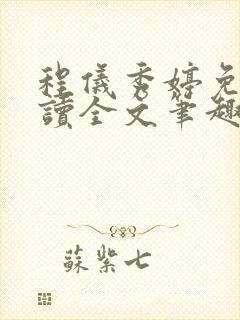 程儀秀婷免
讀全文筆趣
蘇紫七